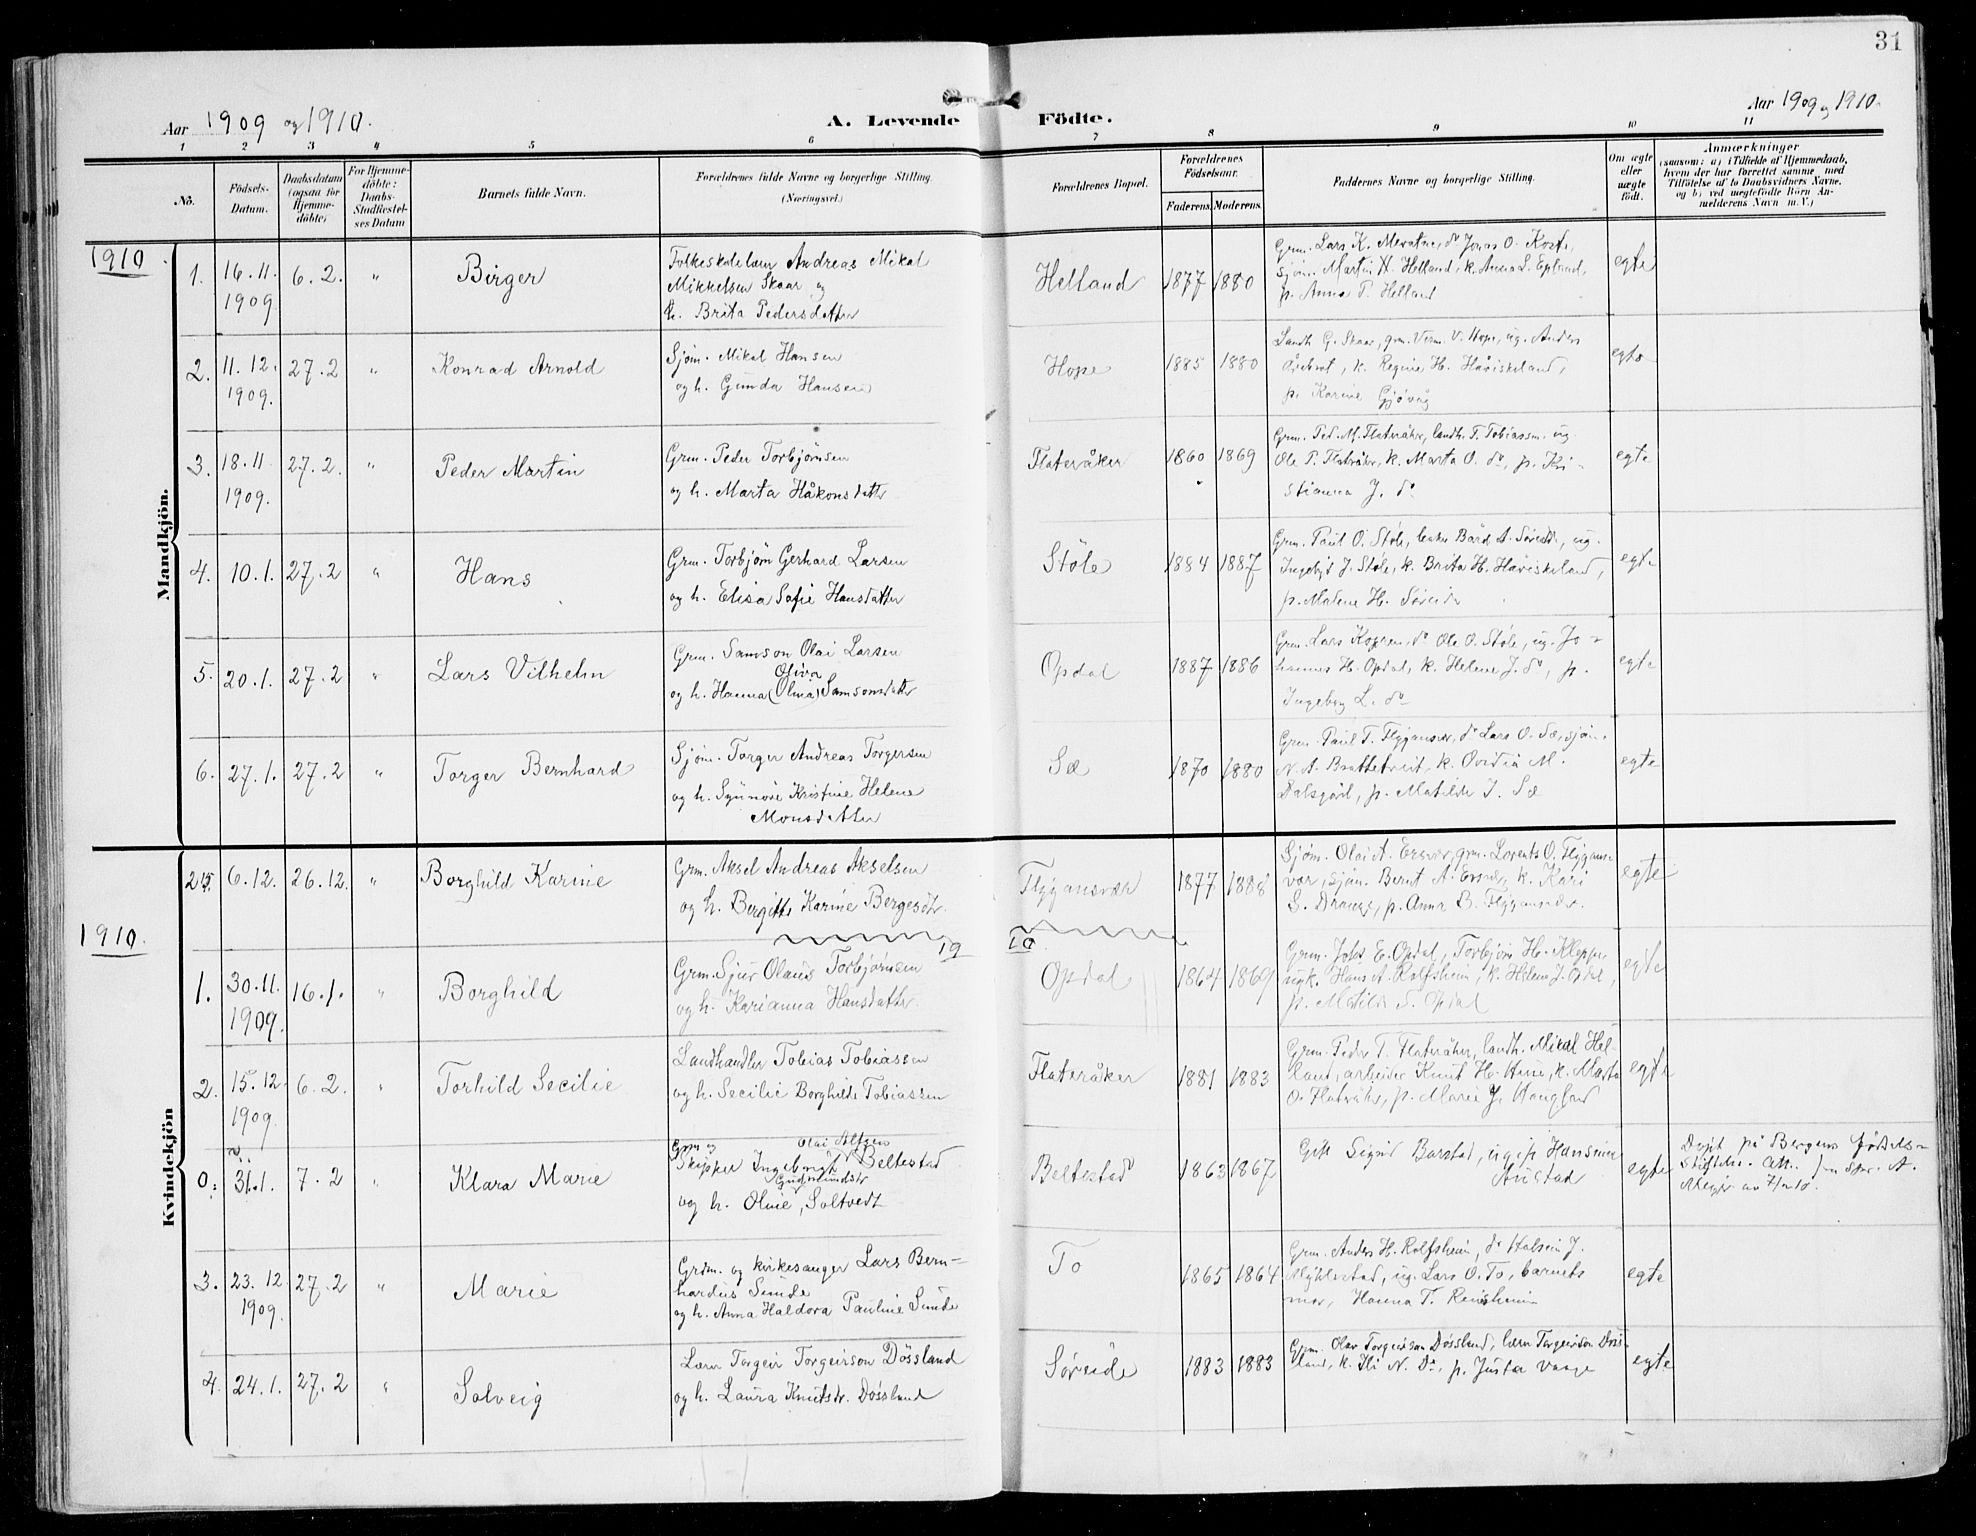 31
Aar 1909 og 1910.
A. Levende Födte.
Aar 1909 og 1910.
1 2 3 4 5 6 7 8 9 10 11
No.
Födsels-
Datum.
Daabsdatum
(ogsaa for
Hjemme-
döbte)
For Hjemme-
döbte:
Daabs-
Stadfæstel-
ses Datum
Barnets fulde Navn.
Forældrenes fulde Navne og borgerlige Stilling.
(Næringsvei.)
Forældrenes Bopæl.
Forældrenes
Födselsaar.
Faderens. Moderens.
Faddernes Navne og borgerlige Stilling.
Om ægte
eller
uægte
födt.
Anmærkninger
(saasom: a) i Tilfælde af Hjemmedaab,
hvem der har forrettet samme, med
Tilföielse af to Daabsvidners Navne,
og b) ved uægtefödte Börn An-
melderens Navn m. V.)
1910.
Mandkjön.
1. 16.11. 1909 6.2. " Birger
Folkeskolelærer Andreas Mikal
Mikkelsen Skaar og
h. Brita Pedersdatter
Helland 1877 1880
Grm. Lars K. Mevatne, do Jonas O. Koste,
sjøm. Martin H. Helland, k. Anna L. Epland,
p. Anna P. Helland
egte
2. 11.12. 1909. 27.2 " Konrad Arnold
Sjøm. Mikal Hansen
og h. Gunda Hansen
Hope 1885 1880
Landh. G. Skaar, grm. V. Hope, ug. Anders
k. Regine H. Håviskeland,
p. Karine Gjøvåg
egte
3. 18.11 1909. 27.2. " Peder Martin
Grm. Peder Torbjørnsen
og h. Marta Håkonsdatter
Flateråker 1860 1869
Grm. Ped. M. Flateråker, landh. T. Tobiassen, ug.
Ole P. Flateråker, k. Marta O. do, p. Kri-
stianna J. do
egte
4. 10.1. 27.2 " Hans
Grm. Torbjørn Gerhard Larsen
og h. Elisa Sofie Hansdatter
Støle 1884 1887
Grm. Paul O. Støle, Bård A. Søreide, ug.
Ingebrigt J. Støle, k. Brita H. Håviskeland,
p. Malene H. Søreide
egte
5. 20.1. 27.2 " Lars Vilhelm
Grm. Samson Olai Larsen
Oliva
og h. Hanna (Olina) Samsonsdatter
Opdal 1887 1886
Grm. Lars Koppen, do Ole O. Støle, ug. Jo-
hannes H. Opdal, k. Helene J. do, p.
Ingeborg L. do
egte
6. 27.1. 27.2 " Torger Bernhard
Sjøm. Torger Andreas Torgersen
og h. Synnøve Kristine Helene
Monsdatter
Sæ 1870 1880
Grm. Paul T. Flygansvær, do Lars O. Sæ, sjøm.
N. A. Brattetveit, k. Ovidia M.
Dalsgård, p. Matilde J. Sæ
egte
Kvindekjön
25. 6.12. 26.12. " Borghild Karine
Grm. Aksel Andreas Akselsen
og h. Bergitte Karine Bergesdtr.
Flygansvær 1877 1888
Sjøm. Olai A. Ersvær, grm. Lorents O. Flygans-
vær, sjøm. Bernt A. Ersvær, k. Kari
S. Drange, p. Anna B. Flygansvær.
egte
1910.
19 10
1. 30.11. 1909. 16.1. " Borghild
Grm. Sjur Olaus Torbjørnsen
og h. Karianna Hansdatter.
Opdal 1864 1869
Grm. Jobs E. Opdal, Torbjørn H. Kleppe,
ugk. Hans A. Rolfsheim, k. Helene J. Opdal,
p. Matilde S. Opdal
egte
2. 15.12. 1909. 6.2. " Torhild Secilie
Landhandler Tobias Tobiassen
og h. Secilie Borghilde Tobiassen
Flateråker 1881 1883
Grm. Peder T. Flateråker, landh. Mikal Hel-
land, arbeider Knut H. k. Marta
O. Flateråker, p. Marie J. Haugland
egte
0. 31.1. 7.2 " Klara Marie
Grm og Olai Alfsen
Skipper Ingebrigt Beltestad
Gudmundsdtr
og h. Oline, Soltvedt
Beltestad 1863 1867
Gift Sigrid Barstad, ug.p. Hansine
Austad
egte
Døpt på Bergens Fødsels-
stiftelse.
3. 23.12. 1909. 27.2 " Marie
Grdm. og kirkesanger Lars Bern-
hardus Sunde
og h. Anna Haldora Pauline Sunde
To 1865 1864
Grm. Anders H. Rolfsheim, do Halsein J.
Myklestad, ug. Lars O. To, barnets
mor, Hanna T. Reisheim
egte
4. 24.1. 27.2 " Solveig
Lærer Torgeir Torgeirson Døssland
og h. Laura Knutsdr. Døssland
Søreide 1883 1883
Grm. Olav Torgeirson Døssland, lærer Torgeirson Døss-
land, k. N. Do, p. Justa Vaage
egte